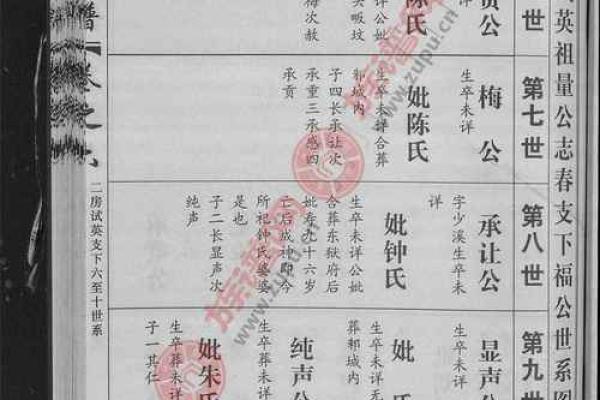 英祖量公志春支下福公世系图
世
公
生卒未详
陈氏
详公妣
畈坟
梅次赦
第七世
梅公
生卒未详
妣陈氏
生卒未详合葬
城内
子四长承让次
承重三承感四
承贡
第八世
承让公
字少溪生卒未
详
妣钟氏
生卒未详公妣
合葬东狱府后
妣寿九十六岁
亡后成神即今
所祀钟氏婆婆
是也
子二长显声次
纯声
第九世
显声公
生卒未详
妣 氏
生卒未详无
城内
纯声公
生卒葬未详
妣朱氏
生卒葬未详
子一其仁
谱
卷之
二房试英支下六至十世系
族谱网
www.zupu.cn
族谱网
www.zupu.cn